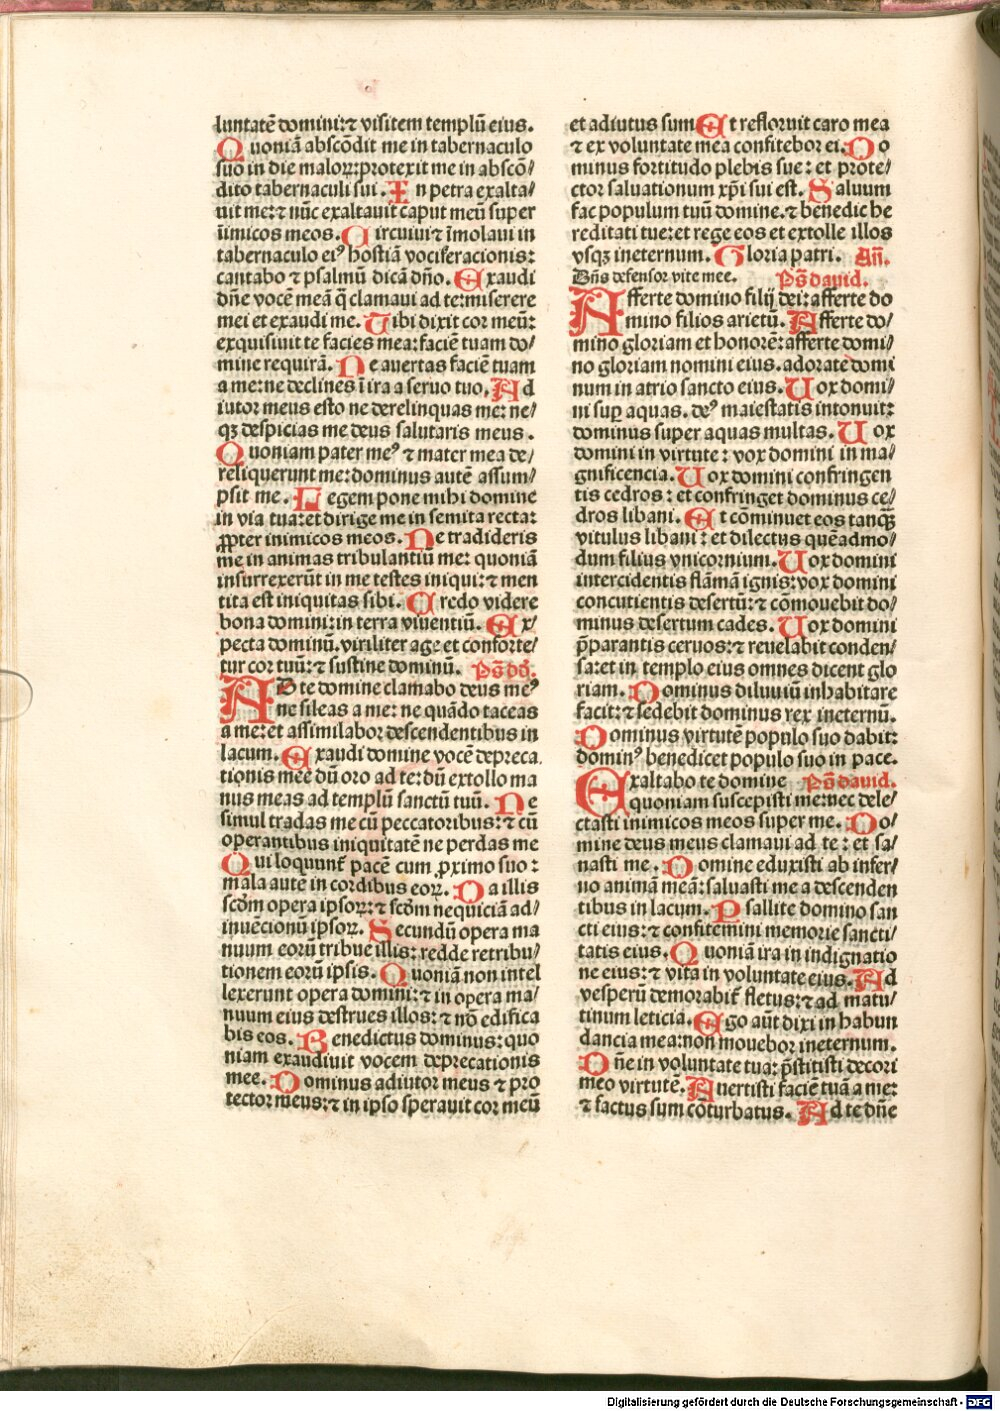 luntatē domini:⁊ visitem templū eius.
Quoniā abscōdit me in tabernaculo
suo in die maloꝝ:protexit me in abscō/
dito tabernaculi sui. In petra exalta/
uit me:⁊ nūc exaltauit caput meū super
īimicos meos. Circuiui⁊ īmolaui in
tabernaculo eiꝰ hostiā vociferacionis:
cantabo ⁊ psalmū dicā dño. Exaudi
dñe vocē meā q̄ clamaui ad te:miserere
mei et exaudi me. Tibi dixit cor meū:
exquisiuit te facies mea:faciē tuam do/
mine requirā. Ne auertas faciē tuam
a me:ne declines ī ira a seruo tuo. Ad
iutor meus esto ne derelinquas me: ne/
qꝫ despicias me deus salutaris meus.
Quoniam pater meꝰ ⁊ mater mea de/
reliquerunt me:dominus autē assum/
psit me. Legem pone mihi domine
in via tua:et dirige me in semita recta:
ꝓpter inimicos meos. Ne tradideris
me in animas tribulantiū me: quoniā
insurrexerūt in me testes iniqui:⁊ men
tita est iniquitas sibi. Credo videre
bona domini:in terra viuentiū. Ex/
pecta dominū.viriliter age:et conforte/
tur cor tuū:⁊ sustine dominū. Ps̄ dd̄.
AD te domine clamabo deus meꝰ
ne sileas a me: ne quādo taceas
a me:et assimilabor descendentibus in
lacum. Exaudi domine vocē depreca
tionis mee dū oro ad te:dū extollo ma
nus meas ad templū sanctū tuū. Ne
simul tradas me cū peccatoribus:⁊ cū
operantibus iniquitatē ne perdas me
Qui loquunt̄ pacē cum ꝓximo suo:
mala aute in cordibus eoꝝ. Da illis
scd̄m opera ipsoꝝ:⁊ scd̄m nequiciā ad/
inuēcionū ipsoꝝ. Secundū opera ma
nuum eorū tribue illis: redde retribu/
tionem eorū ipsis. Quoniā non intel
lexerunt opera domini:⁊ in opera ma/
nuum eius destrues illos:⁊ nō edifica
bis eos. Benedictus dominus:quo
niam exaudiuit vocem deprecationis
mee. Dominus adiutor meus ⁊ pro
tector meus:⁊ in ipso sperauit cor meū
et adiutus sum Et refloruit caro mea
⁊ ex voluntate mea confitebor ei. Do
minus fortitudo plebis sue: et prote/
ctor saluationum xp̄i sui est. Saluum
fac populum tuū domine.⁊ benedic he
reditati tue:et rege eos et extolle illos
vsqꝫ ineternum. Gloria patri. Añ.
Dñs defensor vite mee. Ps̄ dauid.
Afferte domino filij dei:afferte do
mino filios arietū. Afferte do/
mino gloriam et honorē:afferte domi/
no gloriam nomini eius.adorate domi
num in atrio sancto eius. Uox domi/
ni suꝑ aquas.deꝰ maiestatis intonuit:
dominus super aquas multas. Uox
domini in virtute: vox domini in ma/
gnificencia. Uox domini confringen
tis cedros: et confringet dominus ce/
dros libani. Et cōminuet eos tanqꝫ
vitulus libani: et dilectus quēadmo/
dum filius vnicornium. Uox domini
intercidentis flāmā ignis:vox domini
concutientis desertū:⁊ cōmouebit do/
minus desertum cades. Uox domini
p̄parantis ceruos:⁊ reuelabit conden/
sa:et in templo eius omnes dicent glo
riam. Dominus diluuiū inhabitare
facit:⁊ sedebit dominus rex ineternū.
Dominus virtutē populo suo dabit:
dominꝰ benedicet populo suo in pace.
Exaltabo te domine Ps̄ dauid.
quoniam suscepisti me:nec dele/
ctasti inimicos meos super me. Do/
mine deus meus clamaui ad te: et sa/
nasti me. Domine eduxisti ab infer/
no animā meā:saluasti me a descenden
tibus in lacum. Psallite domino san
cti eius:⁊ confitemini memorie sancti/
tatis eius. Quoniā ira in indignatio
ne eius:⁊ vita in voluntate eius. Ad
vesperū demorabit̄ fletus:⁊ ad matu/
tinum leticia. Ego aūt dixi in habun
dancia mea:non mouebor ineternum.
Dñe in voluntate tua:p̄stitisti decori
meo virtutē. Auertisti faciē tuā a me:
⁊ factus sum cōturbatus. Ad te dñe
Digitalisierung gefördert durch die Deutsche Forschungsgemeinschaft - DFG